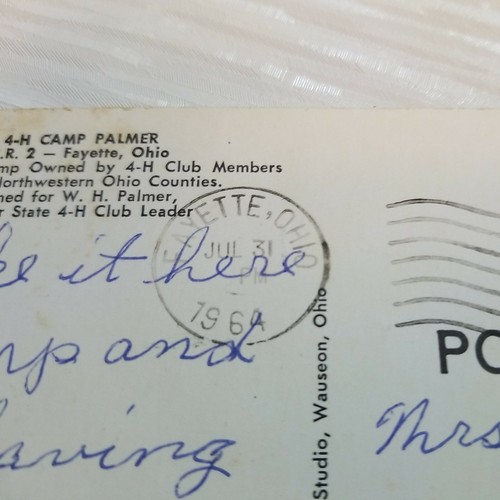 4-H CAMP PALMER
.R. 2 — Fayette, Ohio
mp Owned by 4-H Club Members
Northwestern Ohio Counties.
med for W. H. Palmer,
r State 4-H Club Leader
FAYETTE, OHIO
JUL 31
PM
1964
ke it here
mp and
having
Studio, Wauseon, Ohio
PO
Mrs